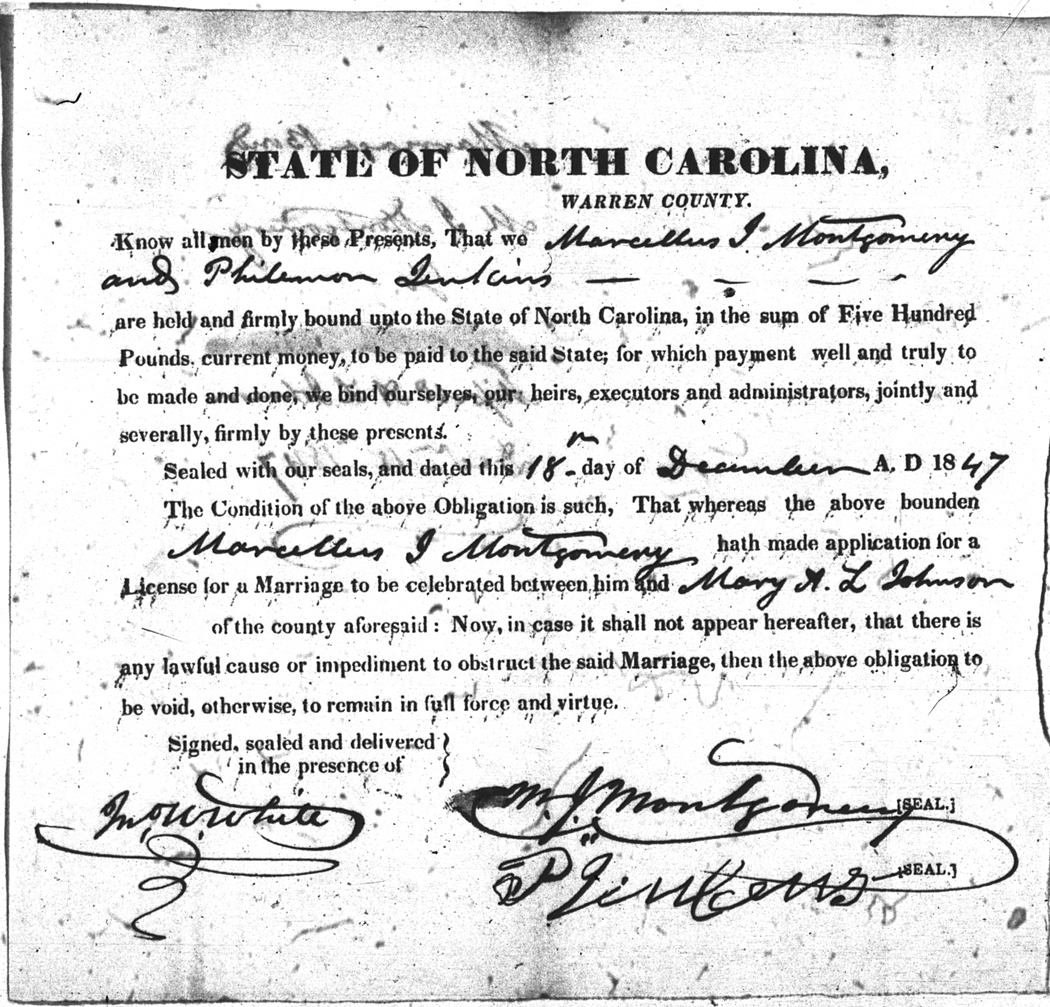 STATE OF NORTH CAROLINA,
WARREN COUNTY.
Know all men by these Presents, That we Marcellus J Montgomery
and Philemon Jenkins
are held and firmly bound unto the State of North Carolina, in the sum of Five Hundred
Pounds. current money, to be paid to the said State; for which payment well and truly to
be made and done, we bind ourselves, our heirs, executors and administrators, jointly and
severally, firmly by these presents.
Sealed with our seals, and dated this 18 day of December A. D 1847
The Condition of the above Obligation is such, That whereas the above bounden
Marcellus J Montgomery hath made application for a
License for a Marriage to be celebrated between him and Mary A. L Johnson
of the county aforesaid: Now, in case it shall not appear hereafter, that there is
any lawful cause or impediment to obstruct the said Marriage, then the above obligation to
be void, otherwise, to remain in full force and virtue.
Signed, sealed and delivered
in the presence of
Jno W. White
M. J. Montgomery [SEAL.]
P Jinkens [SEAL.]